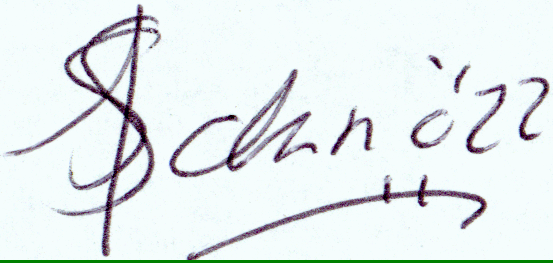 $chnözz